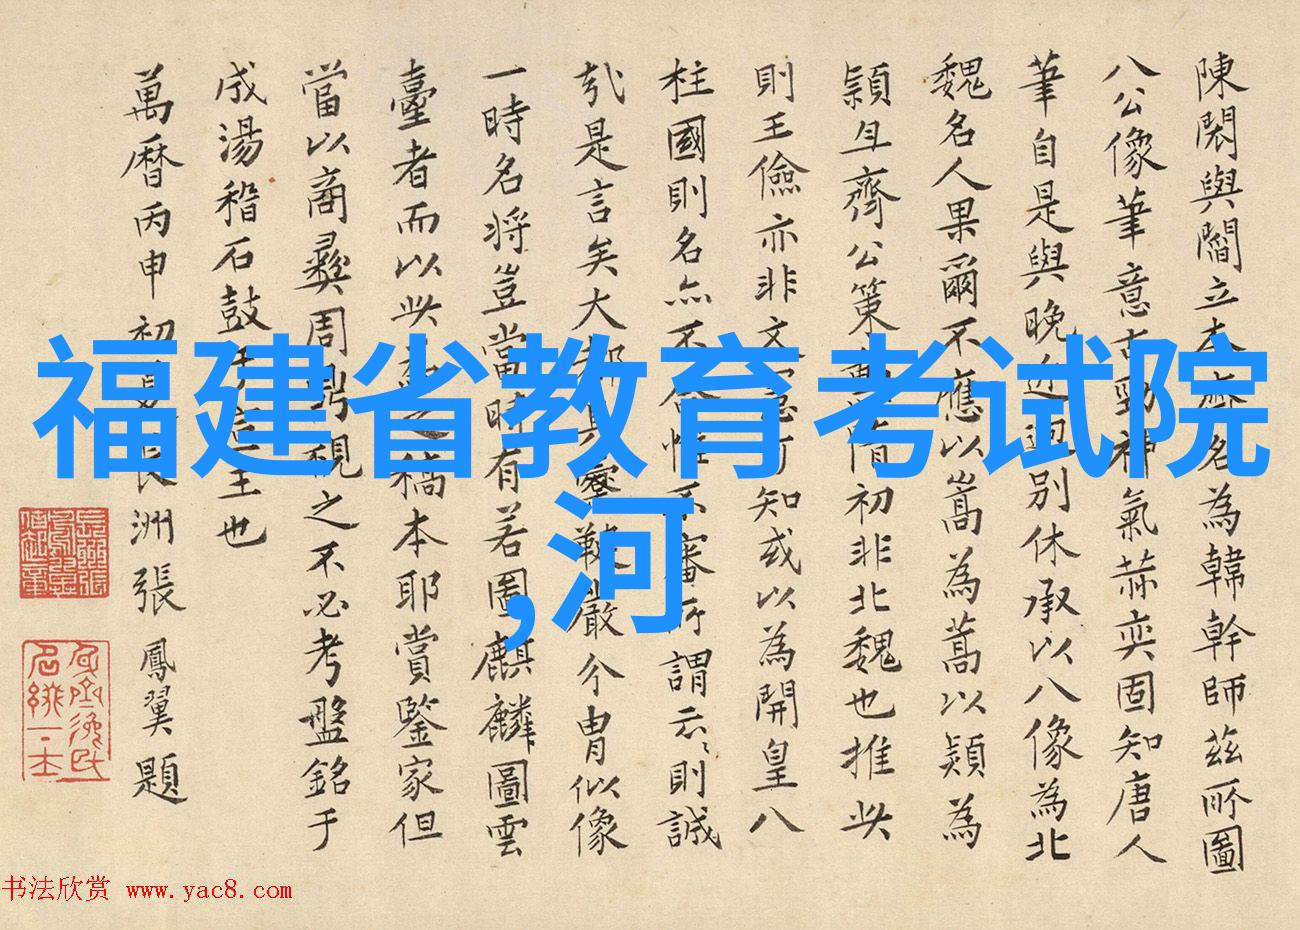 陳閎與閻立本齊名為韓幹師茲所圖
八公像筆意古勁神氣赫奕固知唐人
筆自是與晚近迥別休承以八像為北
魏名人果爾不應以嵩為蒿以熲為
穎且齊公策隋初非北魏也推此
則王儉亦非文可知或以為開皇八
柱國則名亦不合審所謂云、則誠
哉是言矣大都具嚴介冑似像
一時名將豈當時有若圖麒麟圖雲
臺者而以此之稿本耶賞鑒家但
當以商彝周鼎視之不必考盤銘于
成湯稽石鼓于宣王也
萬曆丙申初夏長洲張鳳翼題
福建省教育考试院
,河
书法欣赏 www.yac8.com